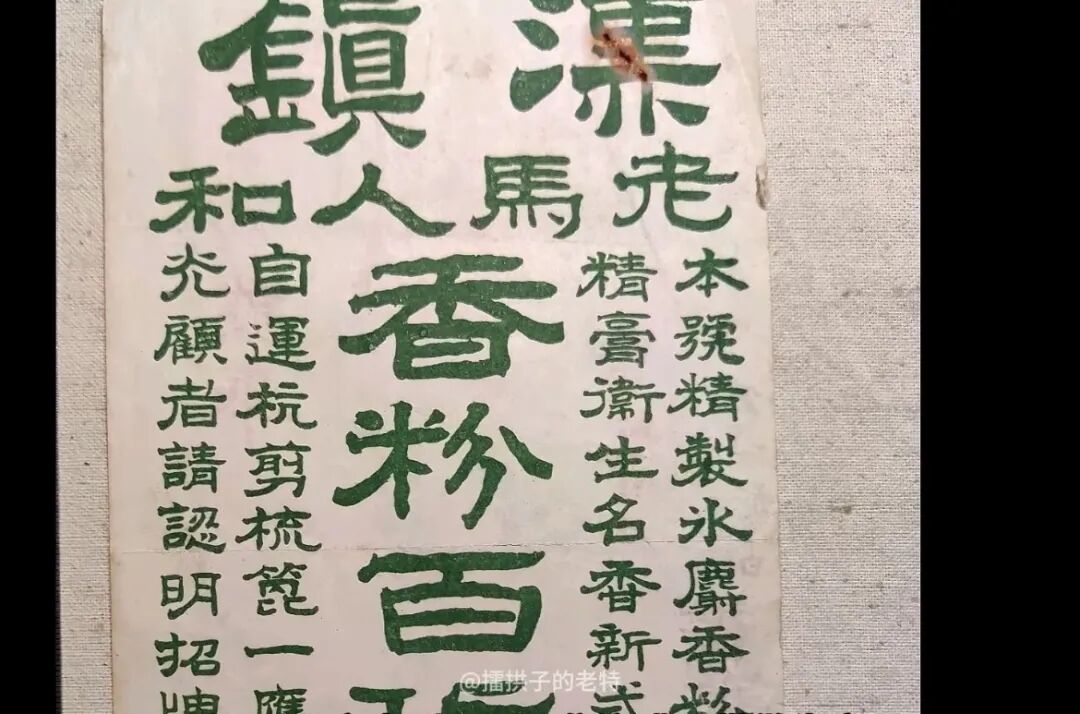 漢鎮
老馬人和
本號精製氷麝香粉
精膏衛生名香新式
香粉百
自運杭剪梳篦一應
光顧者請認明招
@擂拱子的老特